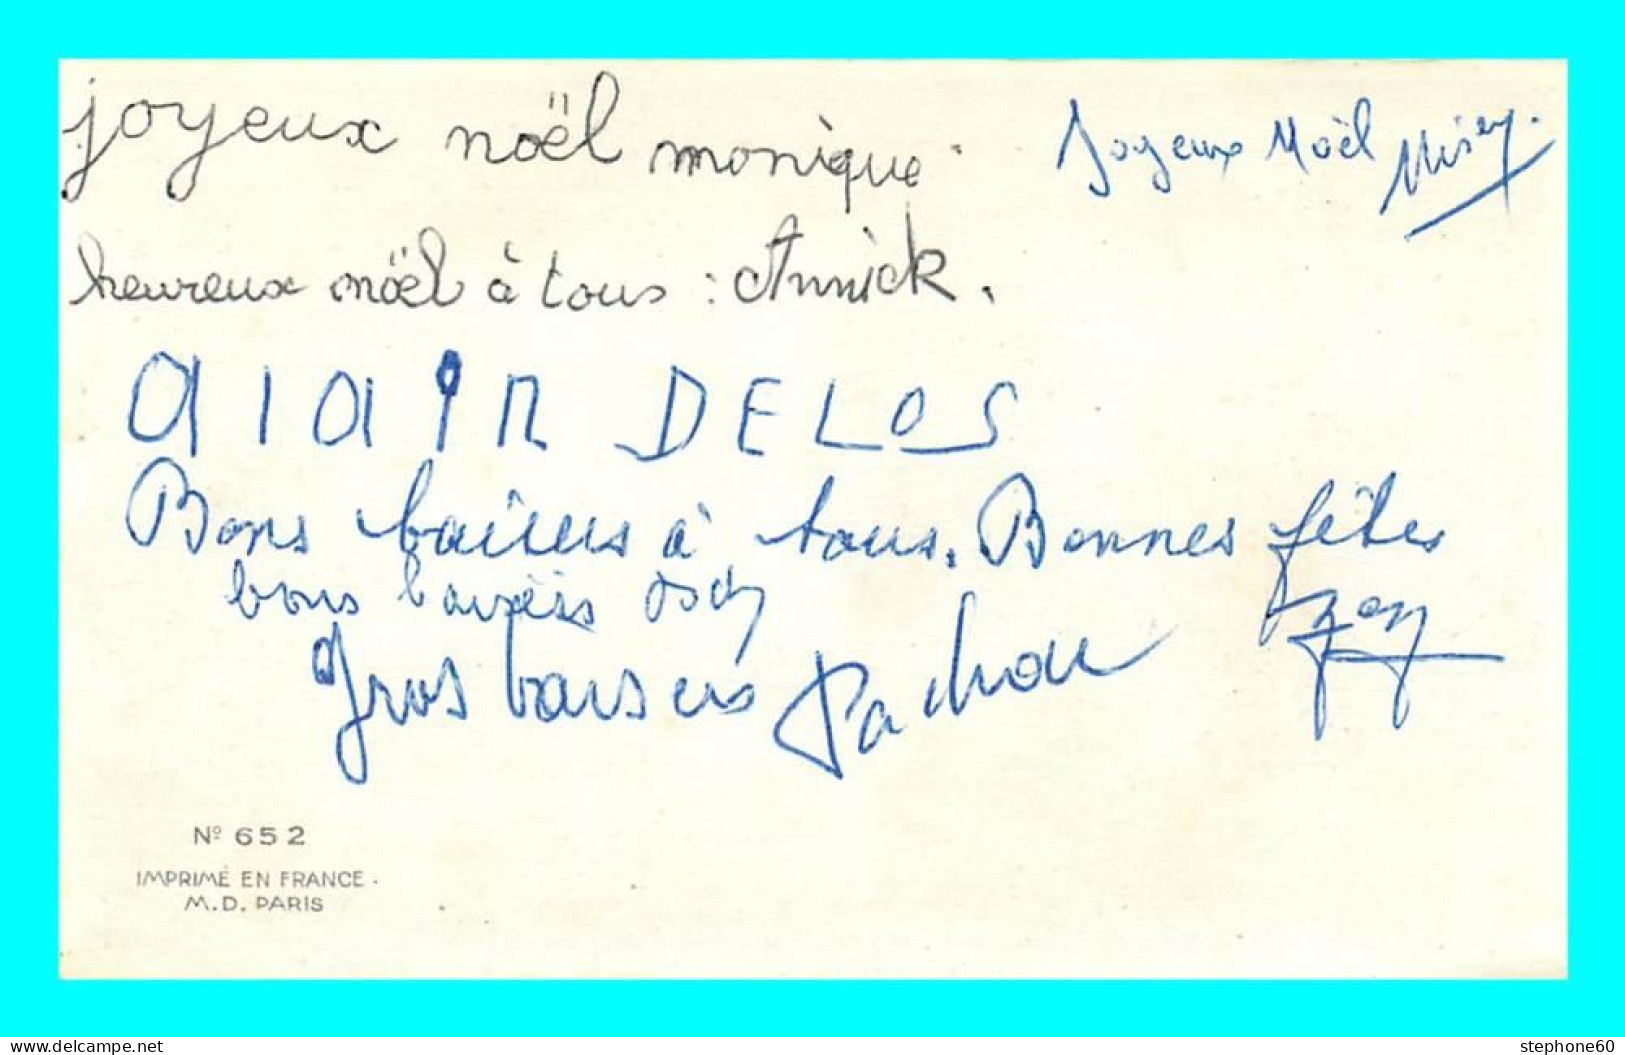 joyeux noël monique.
Joyeux Noël
heureux noël à tous : Annick.
alain DELOS
Bons baisers à tous. Bonnes fêtes
bons baisers
Gros baisers Pachou
Nº 652
IMPRIMÉ EN FRANCE.
M.D. PARIS
www.delcampe.net
stephone60